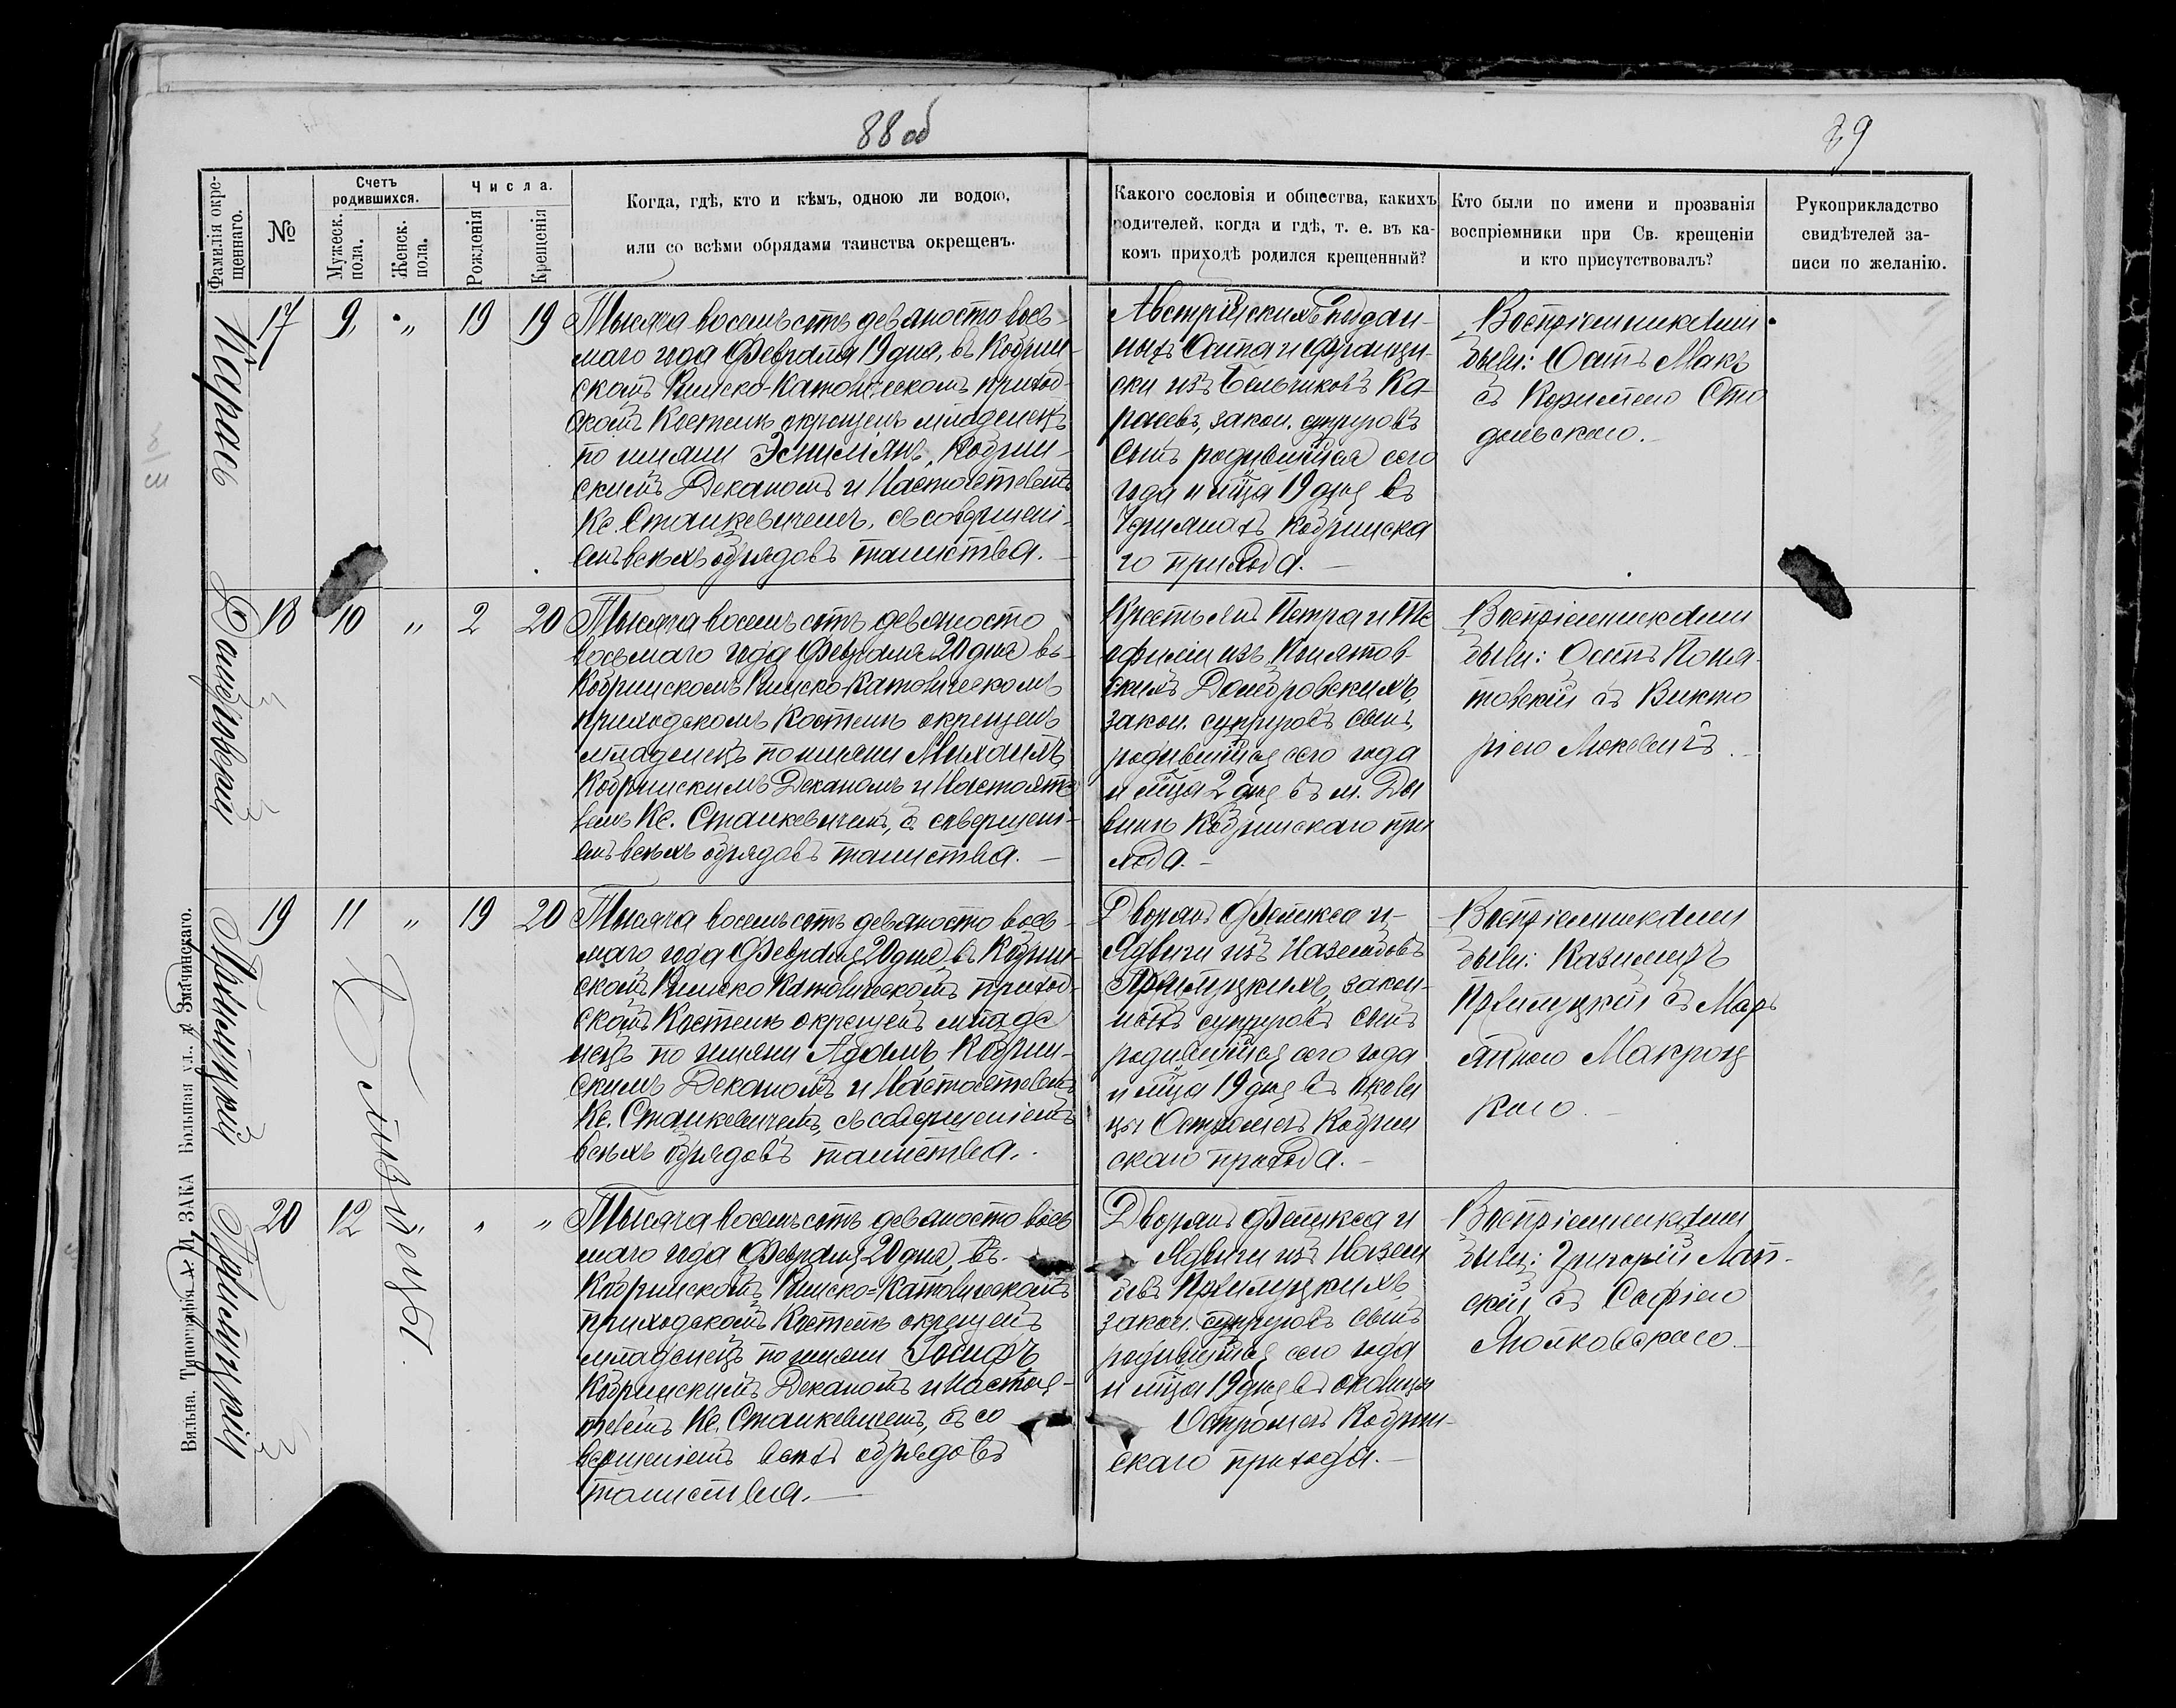 88 об
89
Фамилія окре-
щеннаго.
№
Счетъ
родившихся.
Мужеск.
пола.
Женск.
пола.
Числа.
Рожденія
Крещенія
Когда, гдѣ, кто и кѣмъ, одною ли водою,
или со всѣми обрядами таинства окрещенъ.
Какого сословія и общества, какихъ
родителей, когда и гдѣ, т. е. въ ка-
комъ приходѣ родился крещенный?
Кто были по имени и прозванія
воспріемники при Св. крещеніи
и кто присутствовалъ?
Рукоприкладство
свидѣтелей за-
писи по желанію.
Карась
17 9 „ 19 19
Тысяча восемьсотъ девяносто вось-
маго года Февраля 19 дня, въ Кобрин-
скомъ Римско-Католическомъ приход-
скомъ Костелѣ окрещенъ младенецъ
по имени Эмиліянъ, Кобрин-
скимъ Деканомъ и Настоятелемъ
Кс. Станкевичемъ, съ совершені-
емъ всѣхъ обрядовъ таинства.
Австрійскихъ поддан-
ныхъ и Францис-
ки изъ Бельчиковъ Ка-
расевъ, закон. супруговъ
сынъ родившійся сего
года и мѣца 19 дня въ
Кобринска
го прихода.
Воспріемниками
были: Осипъ Макъ
съ
Домбровскій
18 10 „ 2 20
Тысяча восемьсотъ девяносто
восьмаго года Февраля 20 дня въ
Кобринскомъ Римско-Католическомъ
приходскомъ Костелѣ окрещенъ
младенецъ по имени Михаилъ
Кобринскимъ Деканомъ и Настояте
лемъ Кс. Станкевичемъ, съ совершені-
емъ всѣхъ обрядовъ таинства.
Крестьянъ Петра и Те
офиліи изъ Понятов-
скихъ Домбровскихъ,
закон. супруговъ сынъ,
родившійся сего года
и мѣца 2 дня въ м. Ди
винѣ Кобринскаго при
хода.
Воспріемниками
были: Осипъ Поня-
товскій съ Викто
ріею
Прилуцкій
19 11 „ 19 20
Близнецы
Тысяча восемьсотъ девяносто вось-
маго года Февраля 20 дня, въ Кобрин-
скомъ Римско Католическомъ приход-
скомъ Костелѣ окрещенъ младе
нецъ по имени Адамъ, Кобрин-
скимъ Деканомъ и Настоятелемъ
Кс. Станкевичемъ, съ совершеніемъ
всѣхъ обрядовъ таинства.
Дворянъ Феликса и
Ядвиги изъ
Прилуцкихъ, закон-
ныхъ супруговъ сынъ
родившійся сего года
и мѣца 19 дня въ околи
цы Остромечъ Кобрин
скаго прихода.
Воспріемниками
были: Казимиръ
Прилуцкій съ Марь
Прилуцкій
20 12 „ „ „
Тысяча восемьсотъ девяносто вось
маго года Февраля 20 дня, въ
Кобринскомъ Римско-Католическомъ
приходскомъ Костелѣ окрещенъ
младенецъ по имени Іосифъ
Кобринскимъ Деканомъ и Настоя-
телемъ Кс. Станкевичемъ, съ со
вершеніемъ всѣхъ обрядовъ
таинства.
Дворянъ Феликса и
Ядвиги изъ
Прилуцкихъ,
закон. супруговъ сынъ
родившійся сего года
и мѣца 19 дня въ околицы
Остромечъ Кобрин-
скаго прихода.
Воспріемниками
были: Григорій
съ Софіею
Вильна. Типографія х. И. ЗАКА Большая ул., д. Значинскаго.